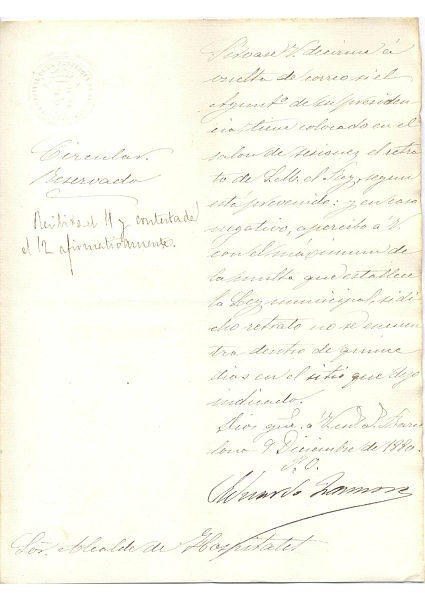 Circular.
Reservado
Recibida el 11 y contestada
el 12 afirmativamente.
Sírvase V. decirme á
vuelta de correo si el
Ayunt.º de su presiden-
cia tiene colocado en el
salon de sesiones el retra-
to de S. M. el Rey, segun
está prevenido: y en caso
negativo, apercibo á V.
con el máximum de
la multa que establece
la Ley municipal, si di-
cho retrato no se encuen-
tra dentro de quince
dias en el sitio que dejo
indicado.
Dios gue. á V. m. a. Barce-
lona 9 Diciembre de 1880.
P. O.
Eduardo Zamora
Sor. Alcalde de Hospitalet